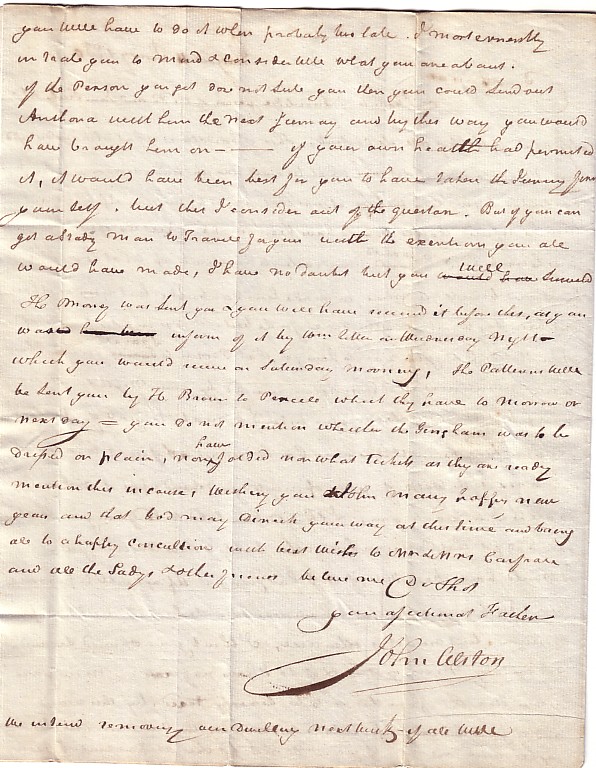 you will have to do it when probably too late. I most ernestly
intreate you to mind & consider well what you are about.
if the Person you get does not sute you then you could send out
with him the next Jurnay and by this way you would
have brought him on - —— if your own health had permited
it, it would have been best for you to have taken the Jurny
your self. but this I consider out of the question. But if you can
get a stady man to Travele for you with the exertions you
would have made, I have no doubt but you will
The Money was sent you & you will have received it before this, as you
was inform of it by letter on Wednesday Night
which you would receive on Saturday morning, The Patterns will
be sent you by H. Brown to which they have to morrow or
next day = you do not mention whether the Gingham was to be
dresed or plain, nor have you aded now what Tickets as they are ready
mention this in course, Wishing you John many happy new
years and that God may Direck your way at this time and bring
all to a happy concultion with best wishes to Mr & Mrs
and all the Ladys & other friends belive me
your afectionat Father
John Alston
We intend removing our Dwelling next week if all well